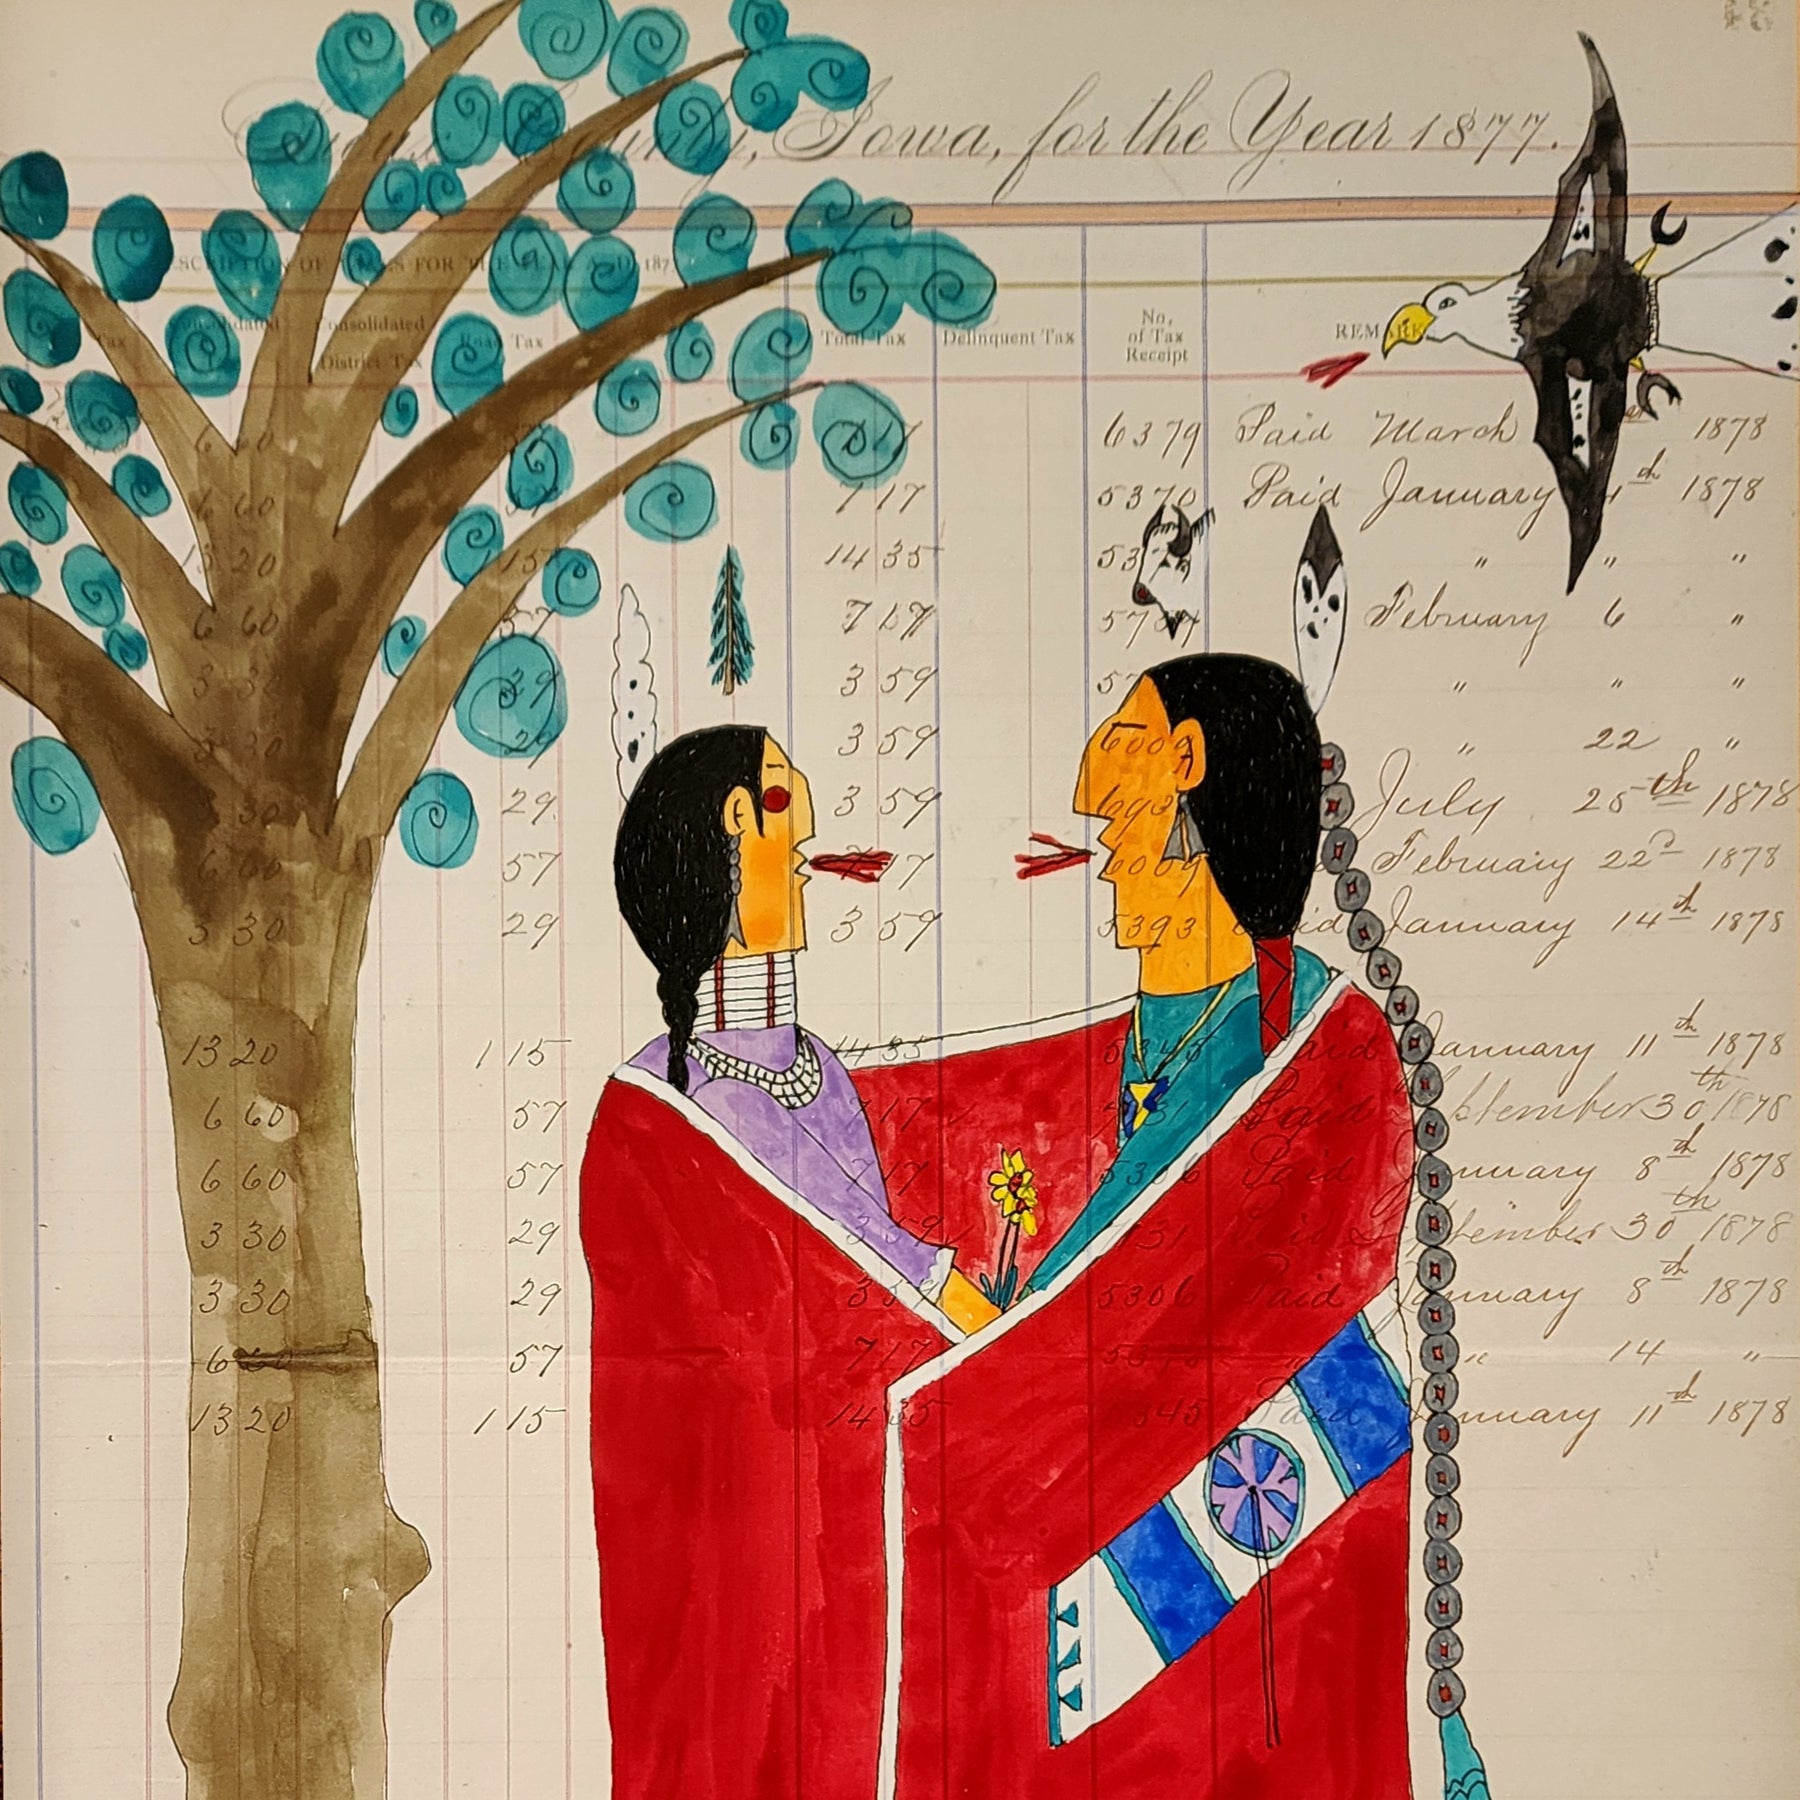 County, Iowa, for the Year 1877.
DESCRIPTION OF TAXES FOR THE YEAR A. D. 187
Tax Consolidated Consolidated District Tax Road Tax Total Tax Delinquent Tax No. of Tax Receipt REMARKS
6 60 7 17 6379 Paid March 1878
6 60 57 7 17 5370 Paid January th 1878
13 20 1 15 14 35 " " "
6 60 57 7 17 February 6 "
3 30 29 3 59 " " "
3 30 29 3 59 6009 " 22 "
3 30 29 3 59 July 25th 1878
6 60 57 7 17 6009 February 22d 1878
3 30 29 3 59 5393 Paid January 14th 1878
13 20 1 15 14 35 5345 Paid January 11th 1878
6 60 57 7 17 Paid September 30th 1878
6 60 57 7 17 5306 Paid January 8th 1878
3 30 29 3 59 Paid September 30th 1878
3 30 29 3 59 5306 Paid January 8th 1878
6 60 57 7 17 " 14 "
13 20 1 15 14 35 5345 Paid January 11th 1878